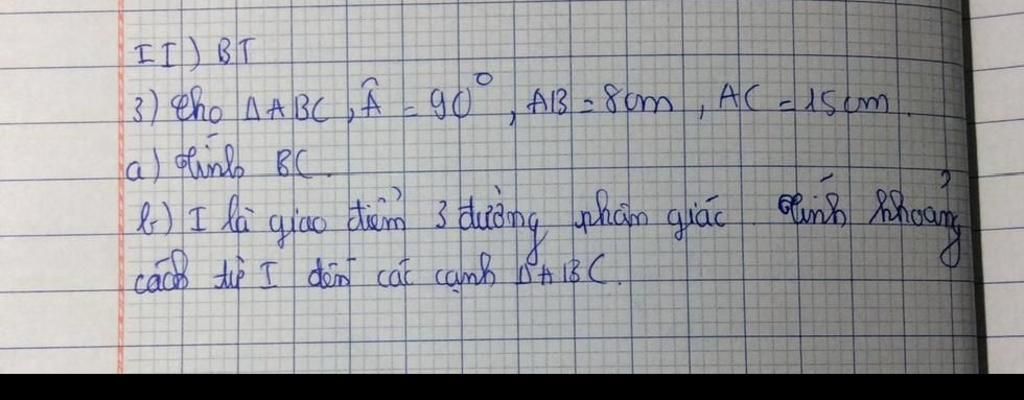 II) BT
3) Cho ΔABC, Â = 90°, AB = 8cm, AC = 15cm.
a) Tính BC.
b) I là giao điểm 3 đường phân giác. Tính khoảng
cách từ I đến các cạnh ΔABC.